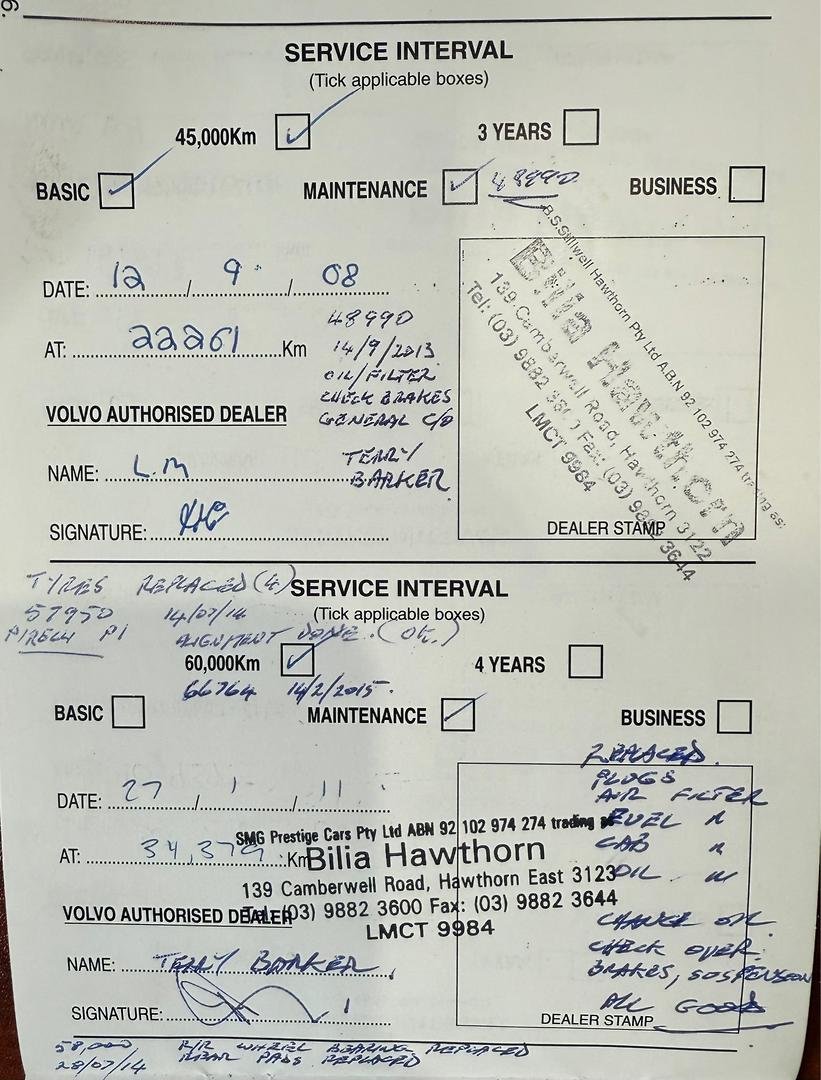 SERVICE INTERVAL
(Tick applicable boxes)
45,000Km
3 YEARS
BASIC
MAINTENANCE
48990
BUSINESS
DATE: 12 / 9 / 08
AT: 22261 Km
48990
14/9/2013
OIL/FILTER
CHECK BRAKES
GENERAL C/O
TERRY
BARKER
VOLVO AUTHORISED DEALER
NAME: L.M
SIGNATURE:
B.S.Stillwell Hawthorn Pty Ltd A.B.N 92 102 974 274 trading as:
Bilia Hawthorn
139 Camberwell Road, Hawthorn 3122
Tel: (03) 9882 Fax: (03) 9882 3644
LMCT 9984
DEALER STAMP
TYRES REPLACED (4)
57950 14/07/14
PIRELLI P1 ALIGNMENT DONE. (OK.)
SERVICE INTERVAL
(Tick applicable boxes)
60,000Km
4 YEARS
66764 14/2/2015.
BASIC
MAINTENANCE
BUSINESS
DATE: 27 / 1 / 11
AT: 34,379 Km
SMG Prestige Cars Pty Ltd ABN 92 102 974 274 trading as
Bilia Hawthorn
139 Camberwell Road, Hawthorn East 3123
Tel: (03) 9882 3600 Fax: (03) 9882 3644
LMCT 9984
VOLVO AUTHORISED DEALER
NAME: TERRY BARKER
SIGNATURE:
REPLACED.
PLUGS
AIR FILTER
FUEL "
CAB "
OIL "
CHANGE OIL.
CHECK OVER.
BRAKES, SUSPENSION
ALL GOOD
DEALER STAMP
58,000 R/R WHEEL BEARING REPLACED
28/07/14 REAR PADS REPLACED